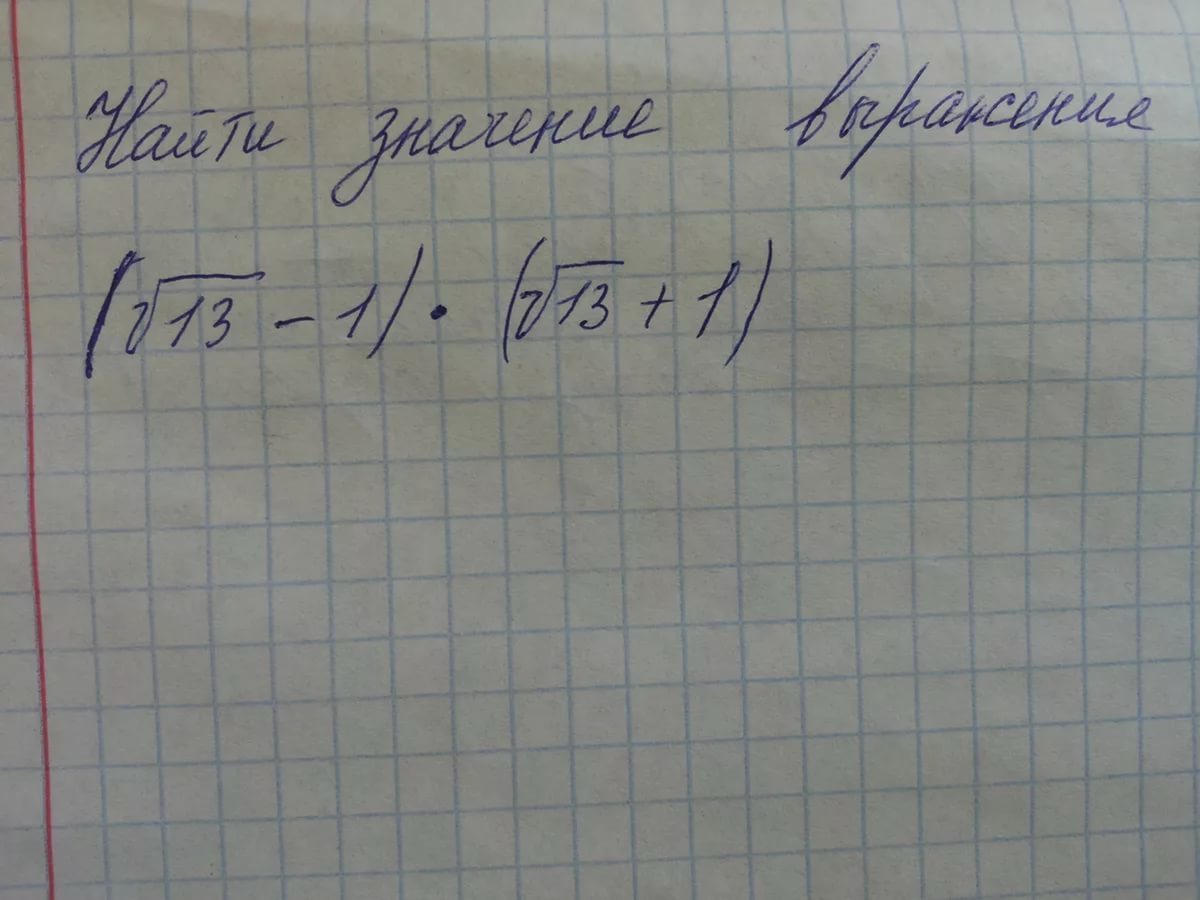 Найти значение выражения
(√13 - 1) · (√13 + 1)